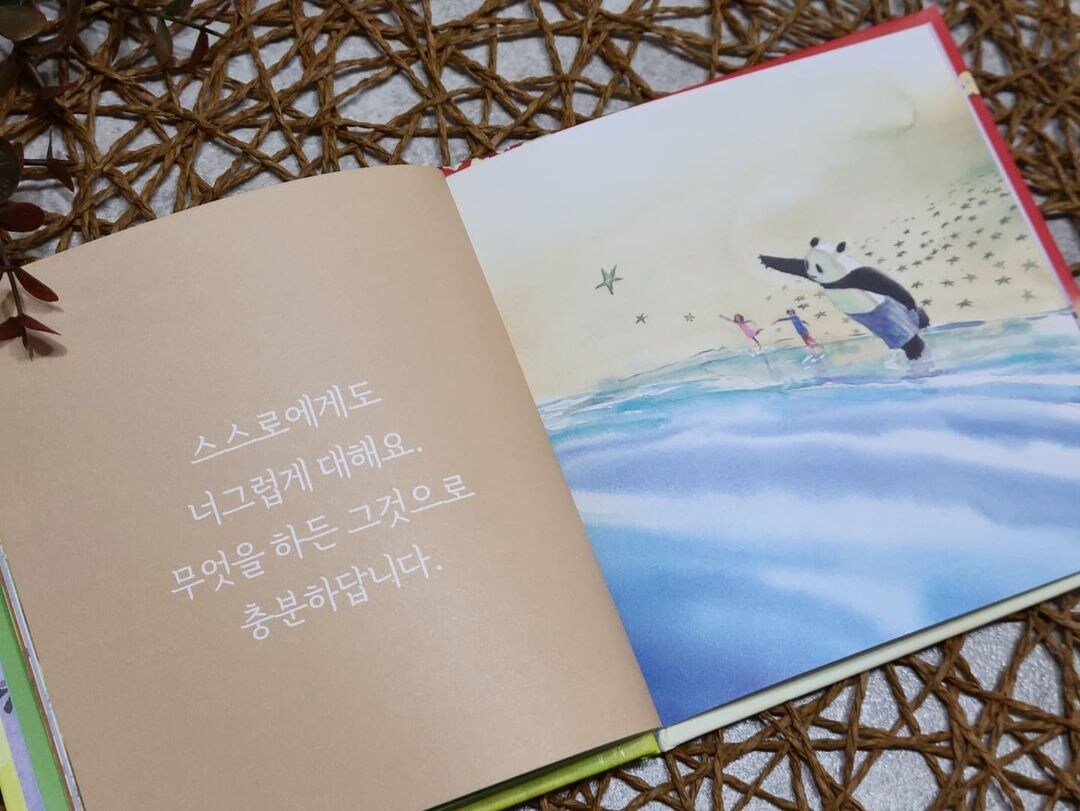 스스로에게도
너그럽게 대해요.
무엇을 하든 그것으로
충분하답니다.